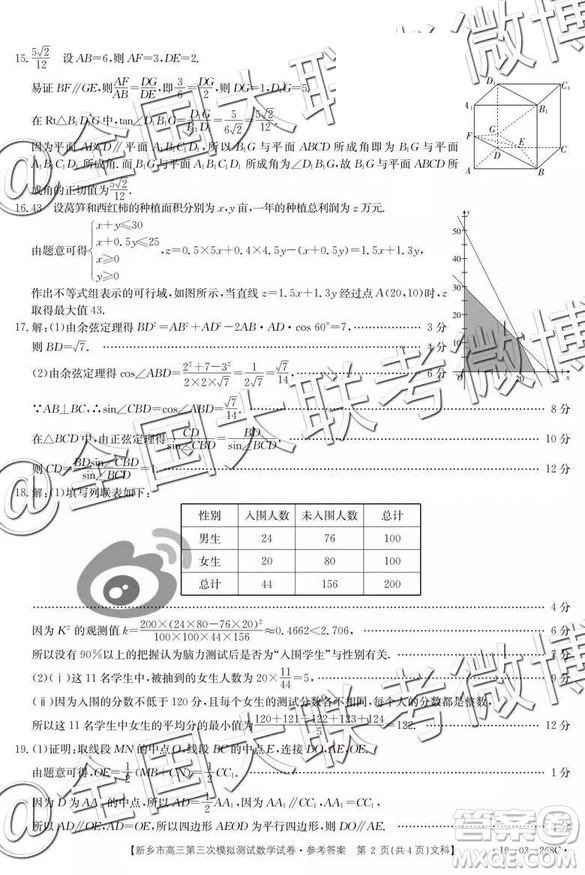 15. 5√2/12 设 AB=6,则 AF=3,DE=2.
易证 BF∥GE,则 AF/AB=DG/DE,即 3/6=DG/2,则 DG=1,D₁G=5.
在 Rt△B₁D₁G 中,tan∠D₁B₁G=D₁G/B₁D₁=5/(6√2)=5√2/12.
因为平面 ABCD∥平面 A₁B₁C₁D₁,所以 B₁G 与平面 ABCD 所成角即为 B₁G 与平面
A₁B₁C₁D₁ 所成角.而 B₁G 与平面 A₁B₁C₁D₁ 所成角为∠D₁B₁G,故 B₁G 与平面 ABCD 所
成角的正切值为 5√2/12.
D₁ C₁
A₁ B₁
F G E
D C
A B
16. 43 设莴笋和西红柿的种植面积分别为 x,y 亩,一年的种植总利润为 z 万元.
由题意可得 { x+y≤30
x+0.5y≤25
x≥0
y≥0 ,z=0.5×5x+0.4×4.5y-(x+0.5y)=1.5x+1.3y,
作出不等式组表示的可行域,如图所示,当直线 z=1.5x+1.3y 经过点 A(20,10)时,z
取得最大值 43.
y
50
40
30
20
10
20 x
17. 解:(1)由余弦定理得 BD²=AB²+AD²-2AB·AD·cos 60°=7, 3 分
则 BD=√7. 4 分
(2)由余弦定理得 cos∠ABD=(2²+7-3²)/(2×2×√7)=1/(2√7)=√7/14, 6 分
∵AB⊥BC,∴sin∠CBD=cos∠ABD=√7/14. 8 分
在△BCD 中,由正弦定理得 CD/sin∠CBD=BD/sin∠BCD,
则 CD=BDsin∠CBD/sin∠BCD=1. 12 分
18. 解:(1)填写列联表如下:
性别 入围人数 未入围人数 总计
男生 24 76 100
女生 20 80 100
总计 44 156 200
4 分
因为 K² 的观测值 k=200×(24×80-76×20)²/(100×100×44×156)≈0.4662<2.706, 6 分
所以没有 90%以上的把握认为脑力测试后是否为“入围学生”与性别有关. 7 分
(2)(ⅰ)这 11 名学生中,被抽到的女生人数为 20×11/44=5, 9 分
(ⅱ)因为入围的分数不低于 120 分,且每个女生的测试分数各不相同,每个人的分数都是整数,
所以这 11 名学生中女生的平均分的最小值为 (120+121+122+123+124)/5=122. 12 分
19. (1)证明:取线段 MN 的中点 O,线段 BC 的中点 E,连接 DO,AE,OE.
由题意可得,OE=1/2(MB+CN)=1/2CC₁. 1 分
因为 D 为 AA₁ 的中点,所以 AD=1/2AA₁,因为 AA₁=CC₁,所以 AD=OE.
所以 AD∥OE,AD=OE,所以四边形 AEOD 为平行四边形,
【新乡市高三第三次模拟测试数学试卷·参考答案 第 2 页(共 4 页)文科】 ·19-03-268C·
@全国大联考微博
@全国大联考微博
@全国大联考微博